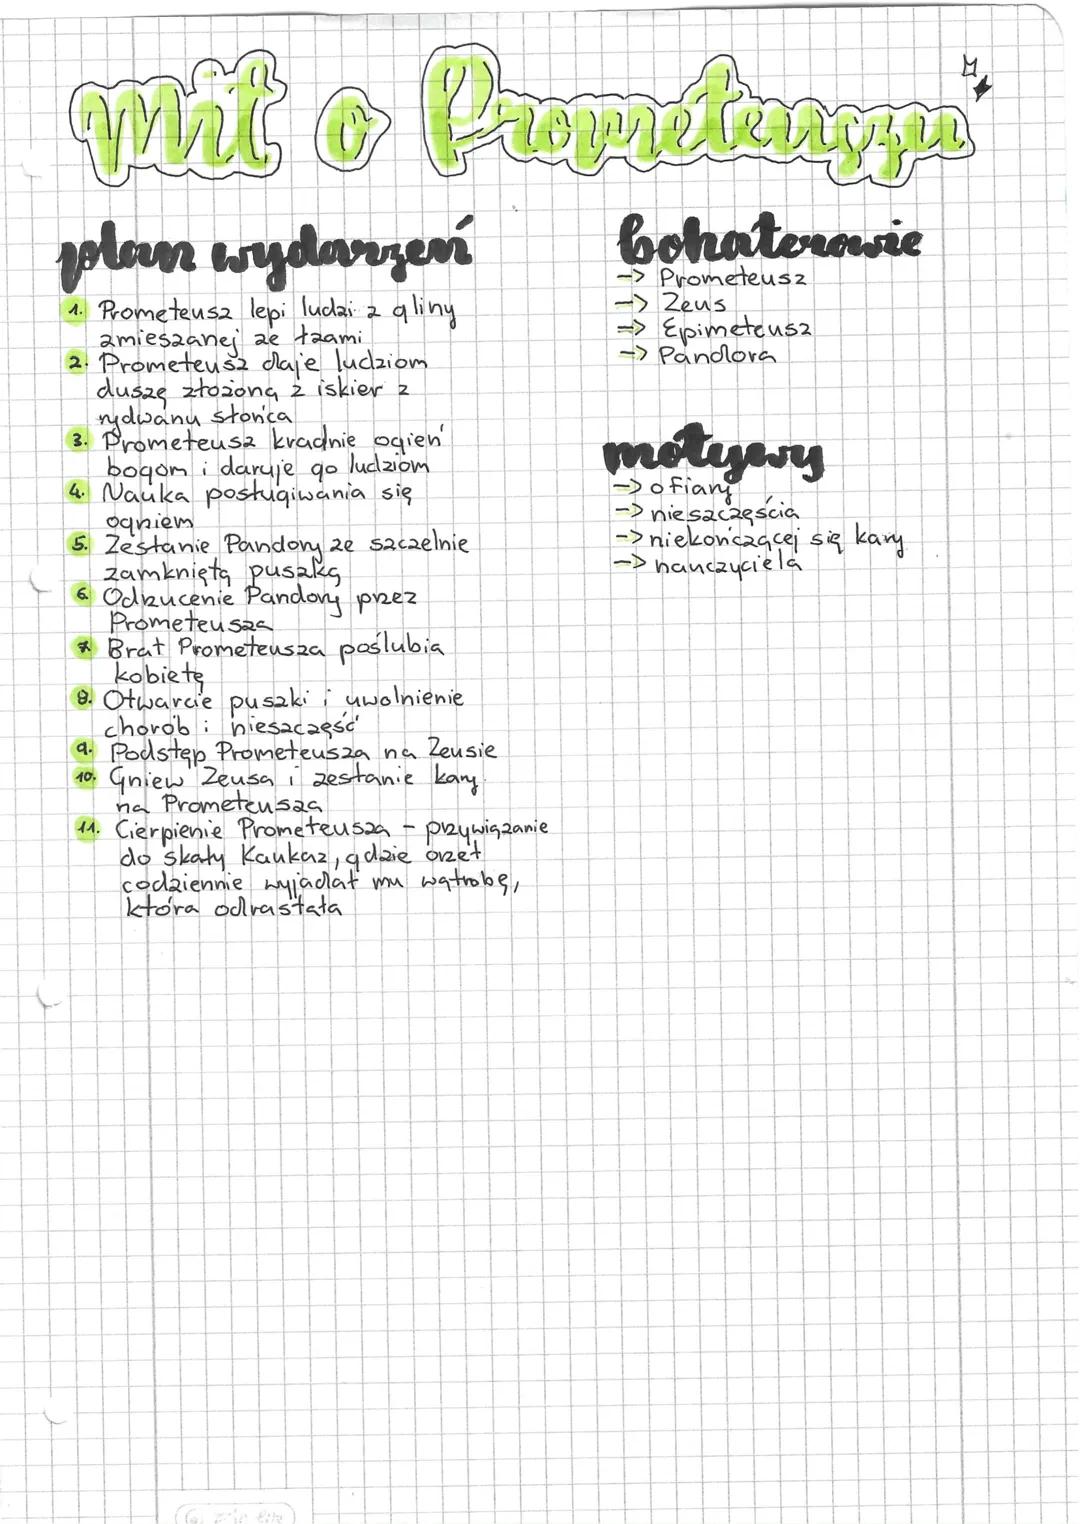 Mit o Prometeuszu
plan wydarzeń
1. Prometeusz lepi ludzi z gliny
zmieszanej ze łzami
2. Prometeusz daje ludziom
duszę złożoną z iskier z
rydwanu słońca
3. Prometeusz kradnie ogień
bogom i daruje go ludziom
4. Nauka posługiwania się
ogniem
5. Zesłanie Pandory ze szczelnie
zamkniętą puszką
6. Odrzucenie Pandory przez
Prometeusza
7. Brat Prometeusza poślubia
kobietę
8. Otwarcie puszki i uwolnienie
chorób i nieszczęść
9. Podstęp Prometeusza na Zeusie
10. Gniew Zeusa i zesłanie kary
na Prometeusza
11. Cierpienie Prometeusza - przywiązanie
do skały Kaukaz, gdzie orzeł
codziennie wyjadał mu wątrobę,
która odrastała
bohaterowie
-> Prometeusz
-> Zeus
-> Epimeteusz
-> Pandora
motywy
-> ofiary
-> nieszczęścia
-> niekończącej się kary
-> nauczyciela